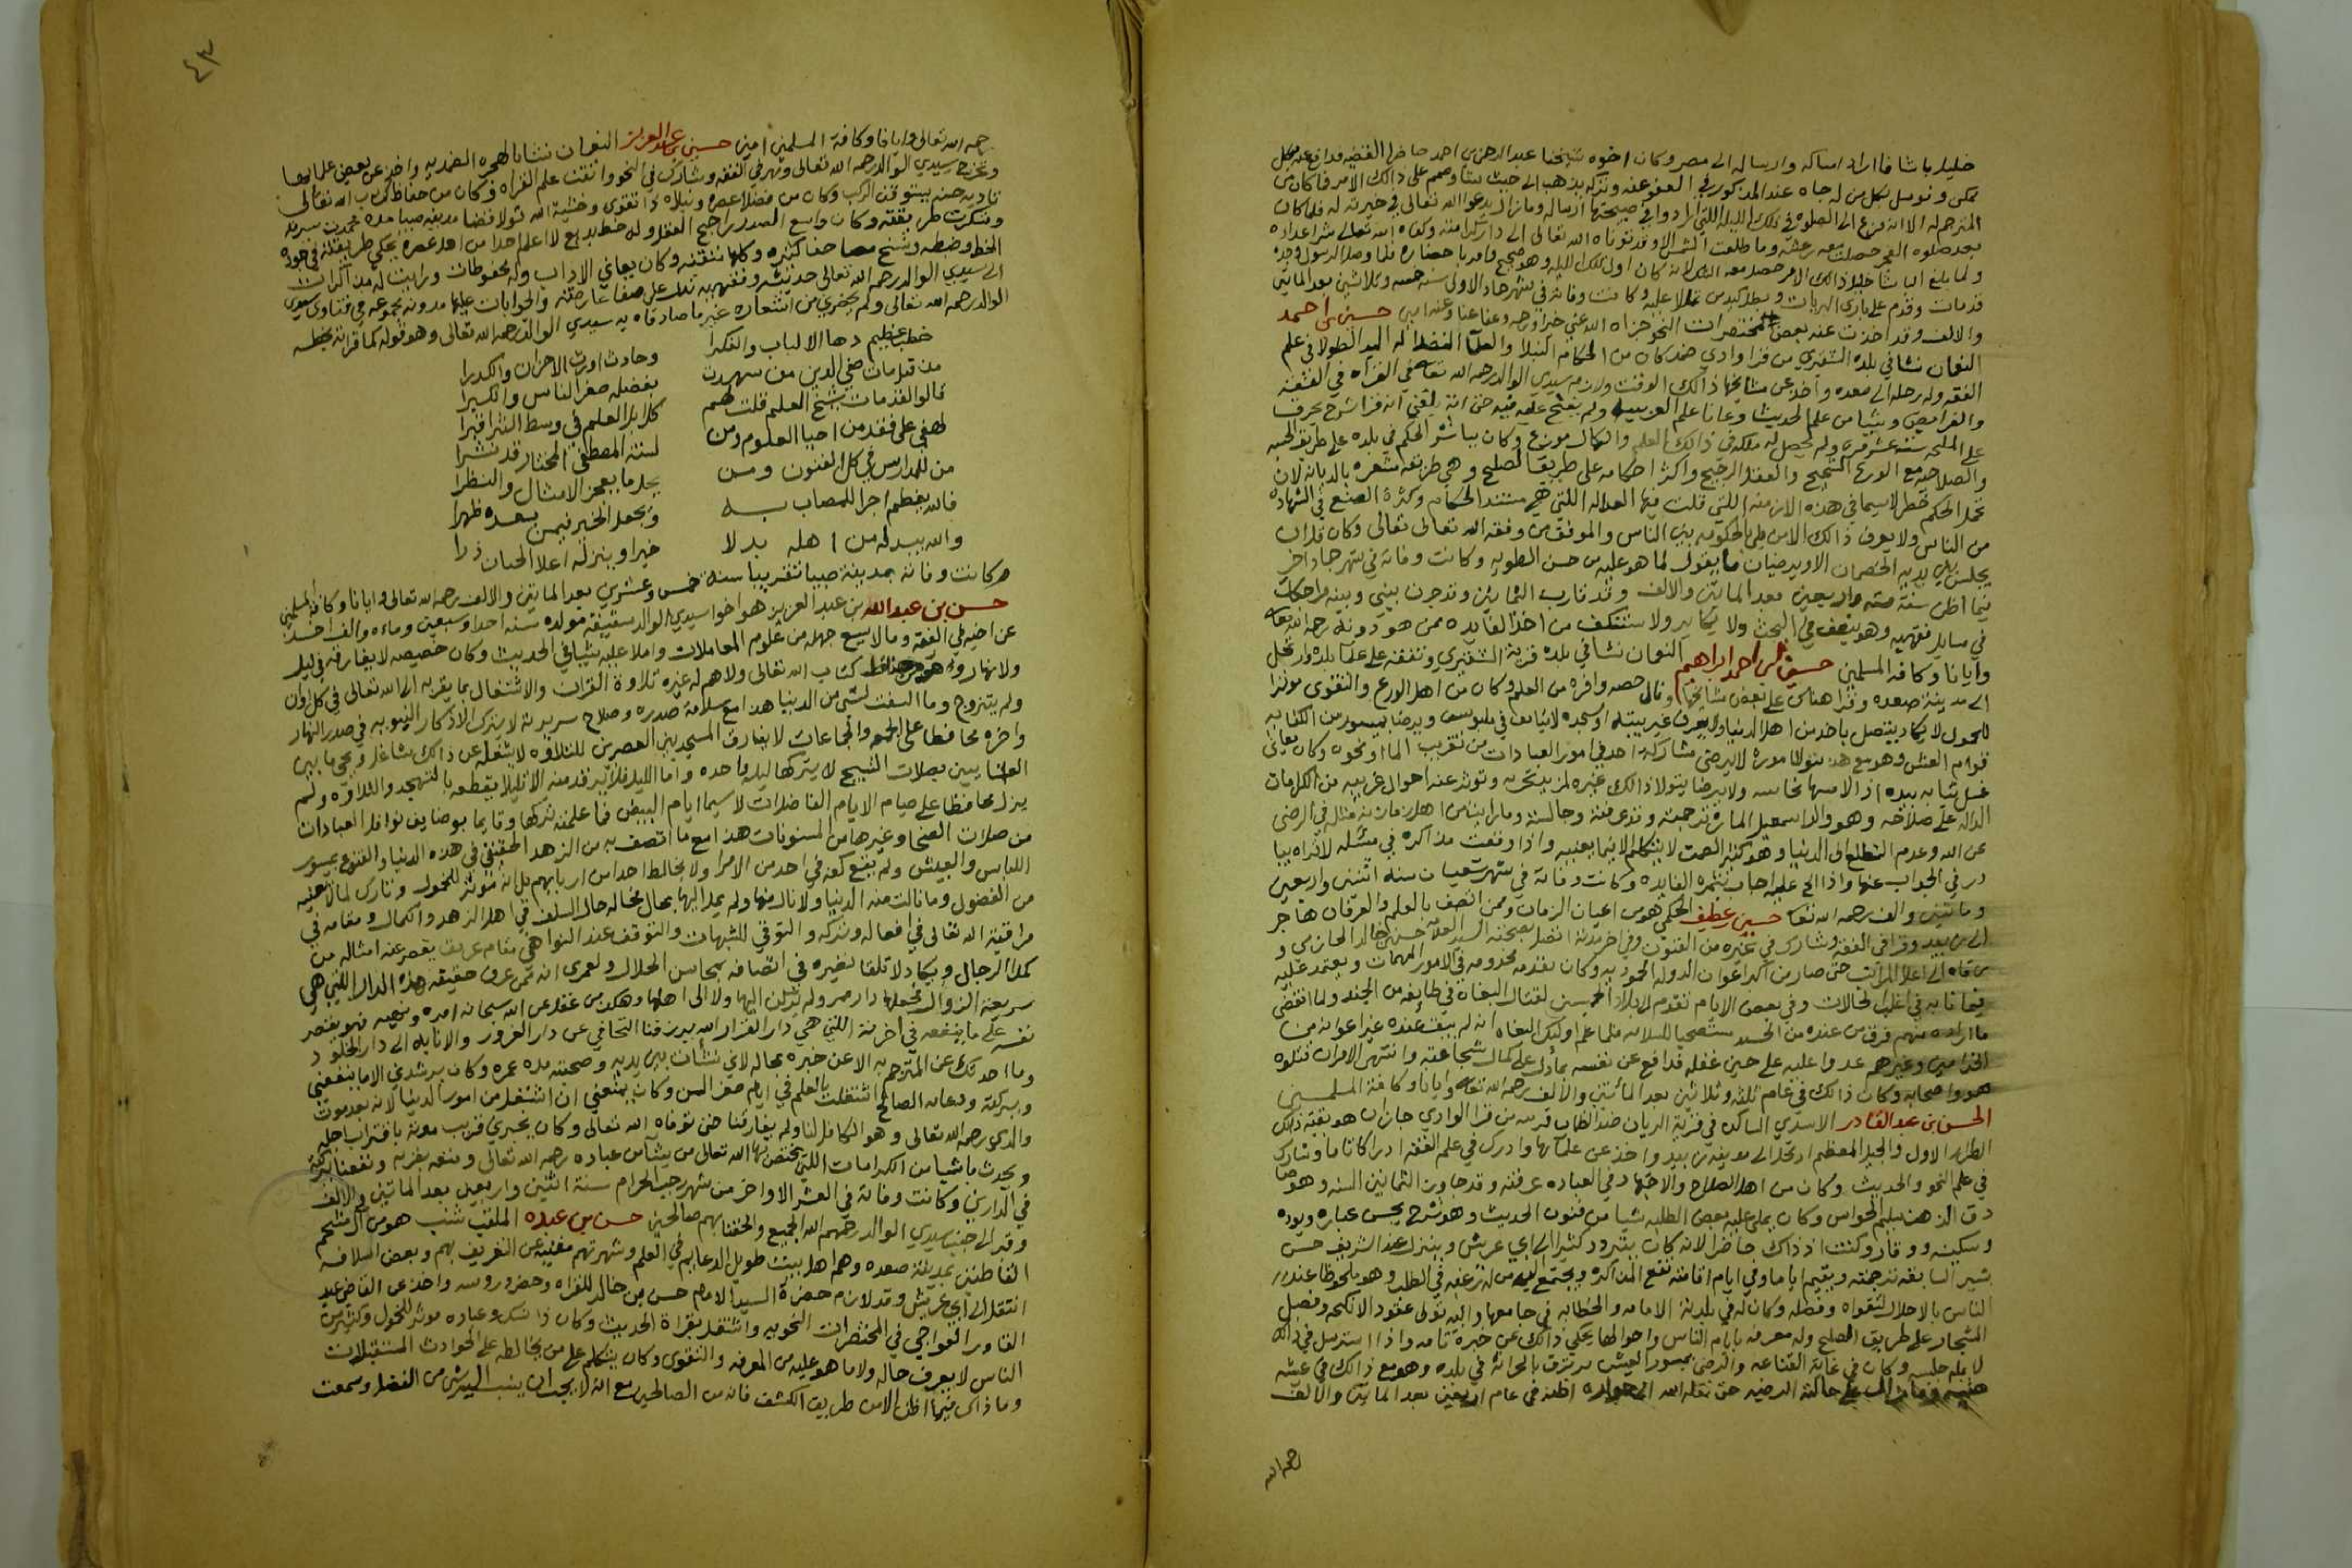 خليل باشا فاراد امساكه وارساله الى مصر وكان اخوه شيخنا عبد الرحمن بن احمد حاضرا القضيه فدافع عنه بكل
ممكن وتوسل بكل من له جاه عند المذكور في العفو عنه وتركه يذهب الى حيث شا وصمم على ذالك الامر فما كان من
المترجم له الا انه فزع الى الصلوه في تلك الليله اللتي ارادوا في صبيحتها ارساله وما زال يدعوا الله تعالى في خيرته له فلما كان
بعد صلوه الفجر حصلت معه رعشه وما طلعت الشمس الا وقد توفاه الله تعالى الى دار كرامته وكفاه الله تعالى شر اعداه
ولما بلغ الباشا خليل ذالك الامر حصل معه الشك لانه كان اول تلك الليله وهو صحيح فامر باحضاره فلما وصل الرسول وجده
قد مات وقدم على باري البريات وكانت وفاته في شهر جماد الاولى سنه خمسه وثلاثين بعد الماتين
والالف وقد اخذت عنه بعض المختصرات النحو جزاه الله عني خيرا ورحمه وعفا عنا وعنه امين حسن بن احمد
النعمان نشا في بلده الشقيري من قرا وادي ضمد كان من الحكام النبلا والعلما الفضلا له اليد الطولا في علم
الفقه وله رحله الى صعده واخذ عن مشايخها ذالك الوقت ولازم سيدي الوالد رحمه الله تعالى في القراه في الفقه
والفرايض وشيا من علم الحديث وعانا علم العربيه ولم يفتح عليه فيه حتى انه بلغني انه قرا شرح بحرق
على الملحه ستة عشر مره ولم يحصل له ملكه في ذالك العلم والكمال موزع وكان يباشر الحكم في بلده على طريق الحسبه
والصلاحيه مع الورع الشحيح والعقل الرجيح واكثر احكامه على طريق الصلح وهي طريقه مشعره بالديانه لان
تحمل الحكم خطر لاسيما في هذه الازمنه اللتي قلت فيها العداله اللتي هي مستند الحكام وكثرة الصنع في الشهاده
من الناس ولا يعرف ذالك الا من بلي بالحكومه بين الناس والموفق من وفقه الله تعالى تعالى وكان قل ان
يجلس بين يديه الخصمان الا ويرضيان ما يقول لما هو عليه من حسن الطويه وكانت وفاته في شهر جماد اخر
فيما اظن سنة سته واربعين بعد الماتين والالف وقد قارب الثمانين وتدور بيني وبينه مراجعات
في مسايل فقهيه وهو ينصف في البحث ولا يكابر ولا يستنكف من اخذ الفايده ممن هو دونه رحمه الله تعالى
وايانا وكافة المسلمين حسين بن احمد ابراهيم النعمان نشا في بلده قرية الشقيري وتفقه على علما بلده وارتحل
الى مدينة صعده وقرا هناك على بعض مشايخها ونال حصه وافره من العلم وكان من اهل الورع والتقوى موثرا
للخمول لا يكاد يتصل باحد من اهل الدنيا ولا يعرف غير بيته او مسجده لا يتانق في ملبوس ويرضا بميسور من الكفايه
قوام العيش وهو مع هذا يتولا اموره لا يرضى مشاركة احد في امور العبادات من تقريب الما او نحوه وكان يعاني
غسل ثيابه بيده اذا لامسها نجاسه ولا يرضا يتولا ذالك غيره لمزيد تحريه وتوثر عنه احوال غريبه من الكرامات
الداله على صلاحه وهو والد اسمعيل الماره ترجمته وقد عرفته وجالسته وما رايت من اهل زمانه مثاله في الرضى
عن الله وعدم التطلع الى الدنيا وهو كثير الصمت لا يتكلم الا فيما يعنيه واذا وقعت مذاكره في مسئله لا تراه يبا
در في الجواب عنها واذا الح عليه اجاب بثمرة الفايده وكانت وفاته في شهر شعبان سنة اثنين واربعين
وماتين والف رحمه الله تعالى حسين بن عطيف الحكمي هو من اعيان الزمان وممن اتصف بالعلم والعرفان هاجر
الى زبيد وقرا في الفقه وشارك في غيره من الفنون وفي اخر مدته اتصل بصحبة السيد العلامه حسن بن خالد الحازمي و
رقاه الى اعلا المراتب حتى صار من اكبر اعوان الدوله الحموديه وكان يقدمه مخدومه في الامور المهمات ويعتمد عليه
في غالب الحالات وفي بعض الايام تقدم لبلاد الحرث لقتال البغاه في طايفه من الجند ولما انقضى
ما اراده منهم فرق من عنده من الجند مستصحبا للسلامه فلما علم اوليك البغاه انه لم يبق عنده غير اعوانه من
الخدامين وغيرهم عدوا عليه على حين غفله فدافع عن نفسه بما دل على كمال شجاعته وانتهى الامر ان قتلوه
هو واصحابه وكان ذالك في عام ثلثه وثلاثين بعد الماتين والالف رحمه الله تعالى وايانا وكافة المسلمين
الحسن بن عبد القادر الاسدي الساكن في قرية الريان ضد الظمان قريه من قرا الوادي جازان هو بقية ذالك
الطراز الاول والجيل المعظم ارتحل الى مدينة زبيد واخذ عن علمائها وادرك في علم الفقه ادراكا تاما وشارك
في علم النحو والحديث وكان من اهل الصلاح والاجتهاد في العباده عرفته وقد جاوز الثمانين السنه وهو صا
دق الذهن سليم الحواس وكان يملى عليه بعض الطلبه شيا من فنون الحديث وهو يشرح بحسن عباره وتوده
وسكينه ووقار وكنت اذ ذاك حاضرا لانه كان يتردد كثيرا الى ابي عريش وينزل عند الشريف حسن
بشير السابقه ترجمته ويقيم اياما وفي ايام اقامته تقع المذاكره ويجتمع اليه من له رغبه في الطلب وهو ملحوظا عند
الناس بالاجلال لتقواه وفضله وكان له في بلدته الامامه والخطابه في جامعها واليه تولى عقود الانكحه وفصل
الشجار على طريق الصلح وله معرفه بايام الناس واحوالها يحكي ذالك عن خبرة تامه واذا استرسل في ذالك
لا يمل جليسه وكان في غاية القناعه والرضى بميسور العيش يرتزق بالحراثه في بلده وهو مع ذالك في عيشه
هنيه وما زال على حالته المرضيه حتى نقله الله الى جواره اظنه في عام اربعين بعد الماتين والالف
رحمه الله
٤٣
رحمه الله تعالى وايانا وكافة المسلمين امين حسين بن عبد العزيز النعمان نشا بالهجره الضمديه واخذ عن بعض علمايها
وتخرج بسيدي الوالد رحمه الله تعالى ومهر في الفقه وشارك في النحو واتقن علم القراه وكان من حفاظ كتاب الله تعالى
تاديه حسنه يستوقف الركب وكان من فضلا عصره ونبلاه ذا تقوى وخشية الله تولا قضا مدينة صبيا مده فحمدت سيرته
وشكرت طريقته وكان واسع الصدر راجح العقل وله خط بديع لا اعلم احدا من اهل عصره يحكي طريقته في جودة
الخط وضبطه ونسخ مصاحفا كثيره وكلها متقنه وكان يعاني الاداب وله محفوظات ورايت له مذاكرات
الى سيدي الوالد رحمه الله تعالى حديثيه وفقهيه تدل على صفا عارضته والجوابات عليها مدونه مجموعه في فتاوى سيدي
الوالد رحمه الله تعالى ولم يحضرني من اشعاره غير ما صادفاه به سيدي الوالد رحمه الله تعالى وهو قوله كما قراته بخطه
خطب عظيم دها الالباب والفكرا وحادث اورث الاحزان والكدرا
مذ قيل مات صفي الدين من شهدت بفضله صغر الناس والكبرا
قالوا لقد مات شيخ العلم قلت لهم كلا بل العلم في وسط الثرا قبرا
لهفي على فقد من احيا العلوم ومن لسنة المصطفى المختار قد نشرا
من للمدارس في كل الفنون ومن يحل ما يعجز الامثال والنظرا
فالله يعظم اجرا للمصاب به ويجعل الخير فيمن بعده ظهرا
والله يبدله من اهله بدلا خيرا وينزله اعلا الجنان ذرا
وكانت وفاته بمدينة صبيا تقريبا سنة خمس وعشرين بعد الماتين والالف رحمه الله تعالى وايانا وكافة المسلمين
حسن بن عبدالله بن عبد العزيز هو اخو سيدي الوالد شقيقه مولده سنه احدا وسبعين وماءه والف اخذ
عن اخيه في الفقه وما لا يسع جهله من علوم المعاملات واملا عليه شيا في الحديث وكان خصيصه لا يفارقه في ليل
ولا نهار وهو من حفاظ كتاب الله تعالى ولا هم له غيره تلاوة القران والاشتغال بما يقربه الى الله تعالى في كل اوان
ولم يتزوج وما التفت لشي من الدنيا هذا مع سلامة صدره وصلاح سريرته لا يترك الاذكار النبويه في صدر النهار
واخره محافظا على الجمعه والجماعات لا يفارق المسجد بين العصرين للتلاوه لا يشغله عن ذالك شاغل ويحي ما بين
العشايين بصلات التسبيح لا يتركها ليله واحده واما الليل فلا يرقد منه الا قليلا يقطعه بالتهجد والتلاوه ولم
يزل محافظا على صيام الايام الفاضلات لاسيما ايام البيض فما علمته تركها وقايما بوضايف نوافل العبادات
من صلات الضحا وغيرها من المسنونات هذا مع ما اتصف به من الزهد الحقيقي في هذه الدنيا والقنوع بميسور
اللباس والعيش ولم يضع كفه في احد من الامرا ولا يخالط احدا من اربابهم بل انه موثر للخمول وتارك لما لا يعنيه
من الفضول وما نالت منه الدنيا ولا نال منها ولم يمل اليها بحال فحاله حال السلف في اهل الزهد والكمال ومقامه في
مراقبة الله تعالى في افعاله وتركه والتوقي للشبهات والتوقف عند النواهي مقام عريق يقصر عنه امثاله من
كملا الرجال ويكاد لا تلقا نظيره في اتصافه بمحاسن الخلال ولعمري انه ممن عرف حقيقة هذه الدار اللتي هي
سريعة الزوال فجعلها دار ممر ولم يركن اليها ولا الى اهلها وهكذا من عقل عن الله سبحانه امره ونهيه فهو يقتصر
نفسه على ما ينفعه في اخرته اللتي هي دار القرار الله يرزقنا التجافي عن دار الغرور والانابه الى دار الخلود
وما احدثك عن المترجم به الا عن خبره بحاله لاني نشات بين يديه وصحبته مدة عمره وكان يرشدني الا ما ينفعني
وببركته ودعائه الصالح اشتغلت بالعلم في ايام صغر السن وكان يمنعني ان اشتغل من امور الدنيا لانه بعد موت
والدي رحمه الله تعالى وهو الكافل لنا ولم يفارقنا حتى توفاه الله تعالى وكان يخبرني قرب موته باقتراب اجله
ويحدث باشيا من الكرامات اللتي يختص بها الله تعالى من يشا من عباده رحمه الله تعالى ومتعه بقربه ونفعنا ببركته
في الدارين وكانت وفاته في العشر الاواخر من شهر رجب الحرام سنة اثنين واربعين بعد الماتين والالف
وقبر الى جنب سيدي الوالد رحمهم الله الجميع والحقنا بهم صالحين حسن بن عبده الملقب شبب هو من المشحم
القاطنين بمدينة صعده وهم اهل بيت طويل الدعايم في العلم وشهرتهم مغنيه عن التعريف بهم وبعض اسلافه
انتقل الى ابي عريش وقد لازم حضرة السيد الامام حسن بن خالد للقراه وحضر دروسه واخذ عن القاضي عبد
القادر العواجي في المختصرات النحويه واشتغل بقراة الحديث وكان ذا نسك وعباده موثر للخمول وكثير من
الناس لا يعرف حاله ولا ما هو عليه من المعرفه والتقوى وكان يتكلم على من يخالطه على الحوادث المستقبلات
وما ذاك فيما اظن الا من طريق الكشف فانه من الصالحين مع انه لا يحب ان ينسب اليه شي من الفضل وسمعت